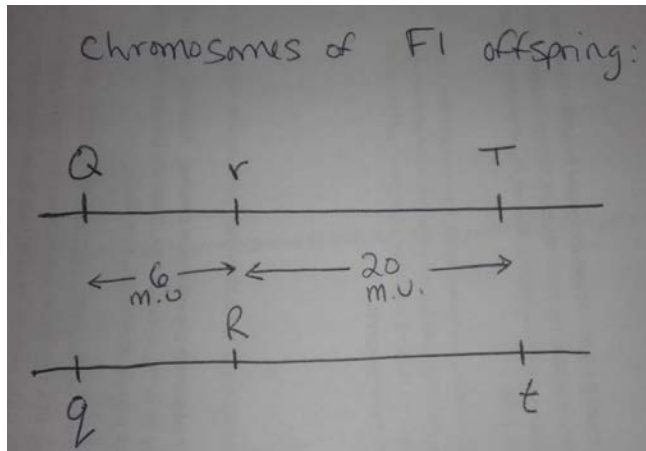 Chromosomes of F1 offspring:
Q r T
6 20
m.u m.u.
R
q t